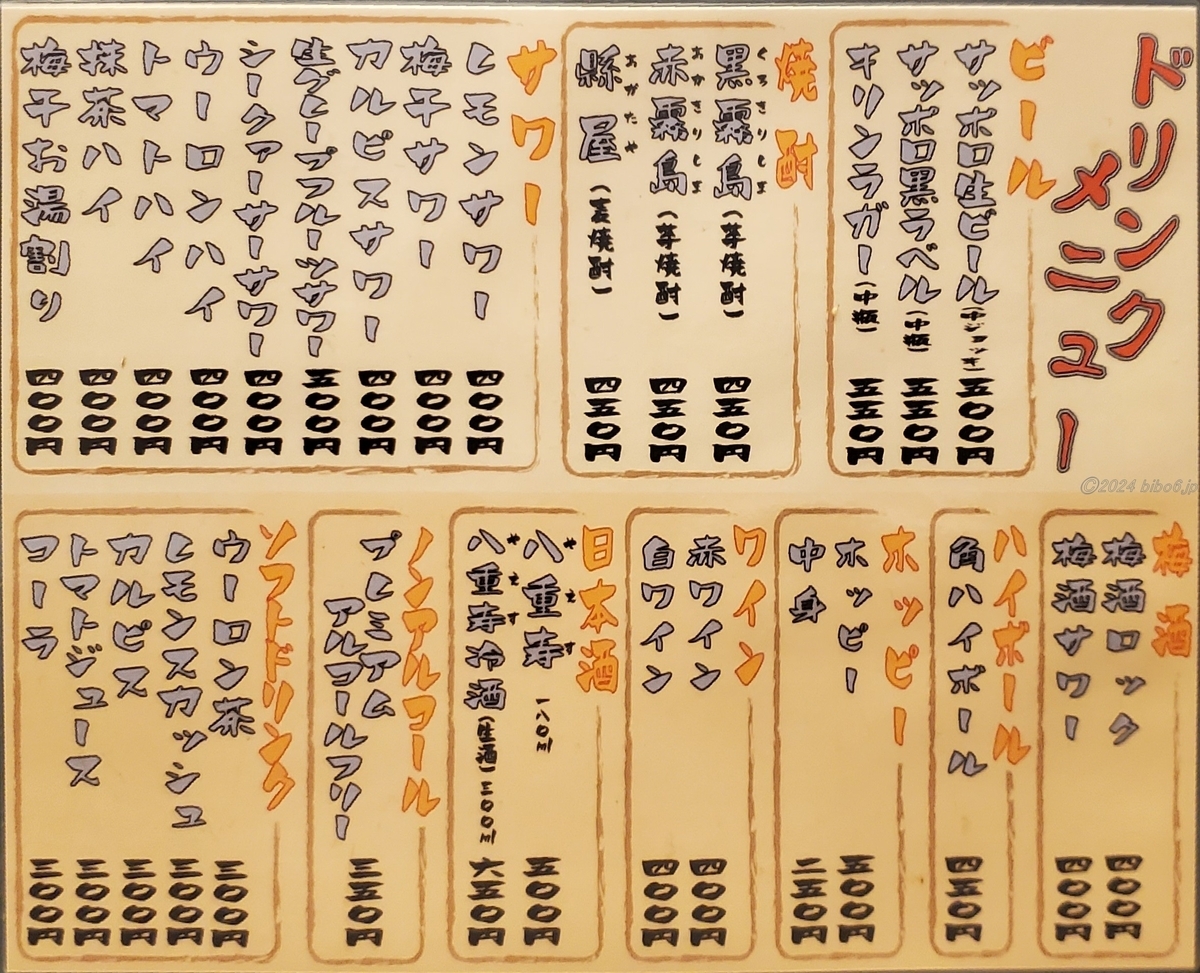 ドリンク
メニュー
ビール
サッポロ生ビール(中ジョッキ) 五〇〇円
サッポロ黒ラベル(中瓶) 五五〇円
キリンラガー(中瓶) 五五〇円
焼酎
黒霧島(芋焼酎) 四五〇円
くろきりしま
赤霧島(芋焼酎) 四五〇円
あかきりしま
縣屋(麦焼酎) 四五〇円
あがたや
サワー
レモンサワー 四〇〇円
梅干サワー 四〇〇円
カルピスサワー 四〇〇円
生グレープフルーツサワー 五〇〇円
シークァーサーサワー 四〇〇円
ウーロンハイ 四〇〇円
トマトハイ 四〇〇円
抹茶ハイ 四〇〇円
梅干お湯割り 四〇〇円
©2024 bibo6.jp
梅酒
梅酒ロック 四〇〇円
梅酒サワー 四〇〇円
ハイボール
角ハイボール 四五〇円
ホッピー
ホッピー 五〇〇円
中身 二五〇円
ワイン
赤ワイン 四〇〇円
白ワイン 四〇〇円
日本酒
八重寿 一八〇ml 五〇〇円
やえす
八重寿冷酒(生酒)三〇〇ml 六五〇円
やえす
ノンアルコール
プレミアム
アルコールフリー 三五〇円
ソフトドリンク
ウーロン茶 三〇〇円
レモンスカッシュ 三〇〇円
カルピス 三〇〇円
トマトジュース 三〇〇円
コーラ 三〇〇円